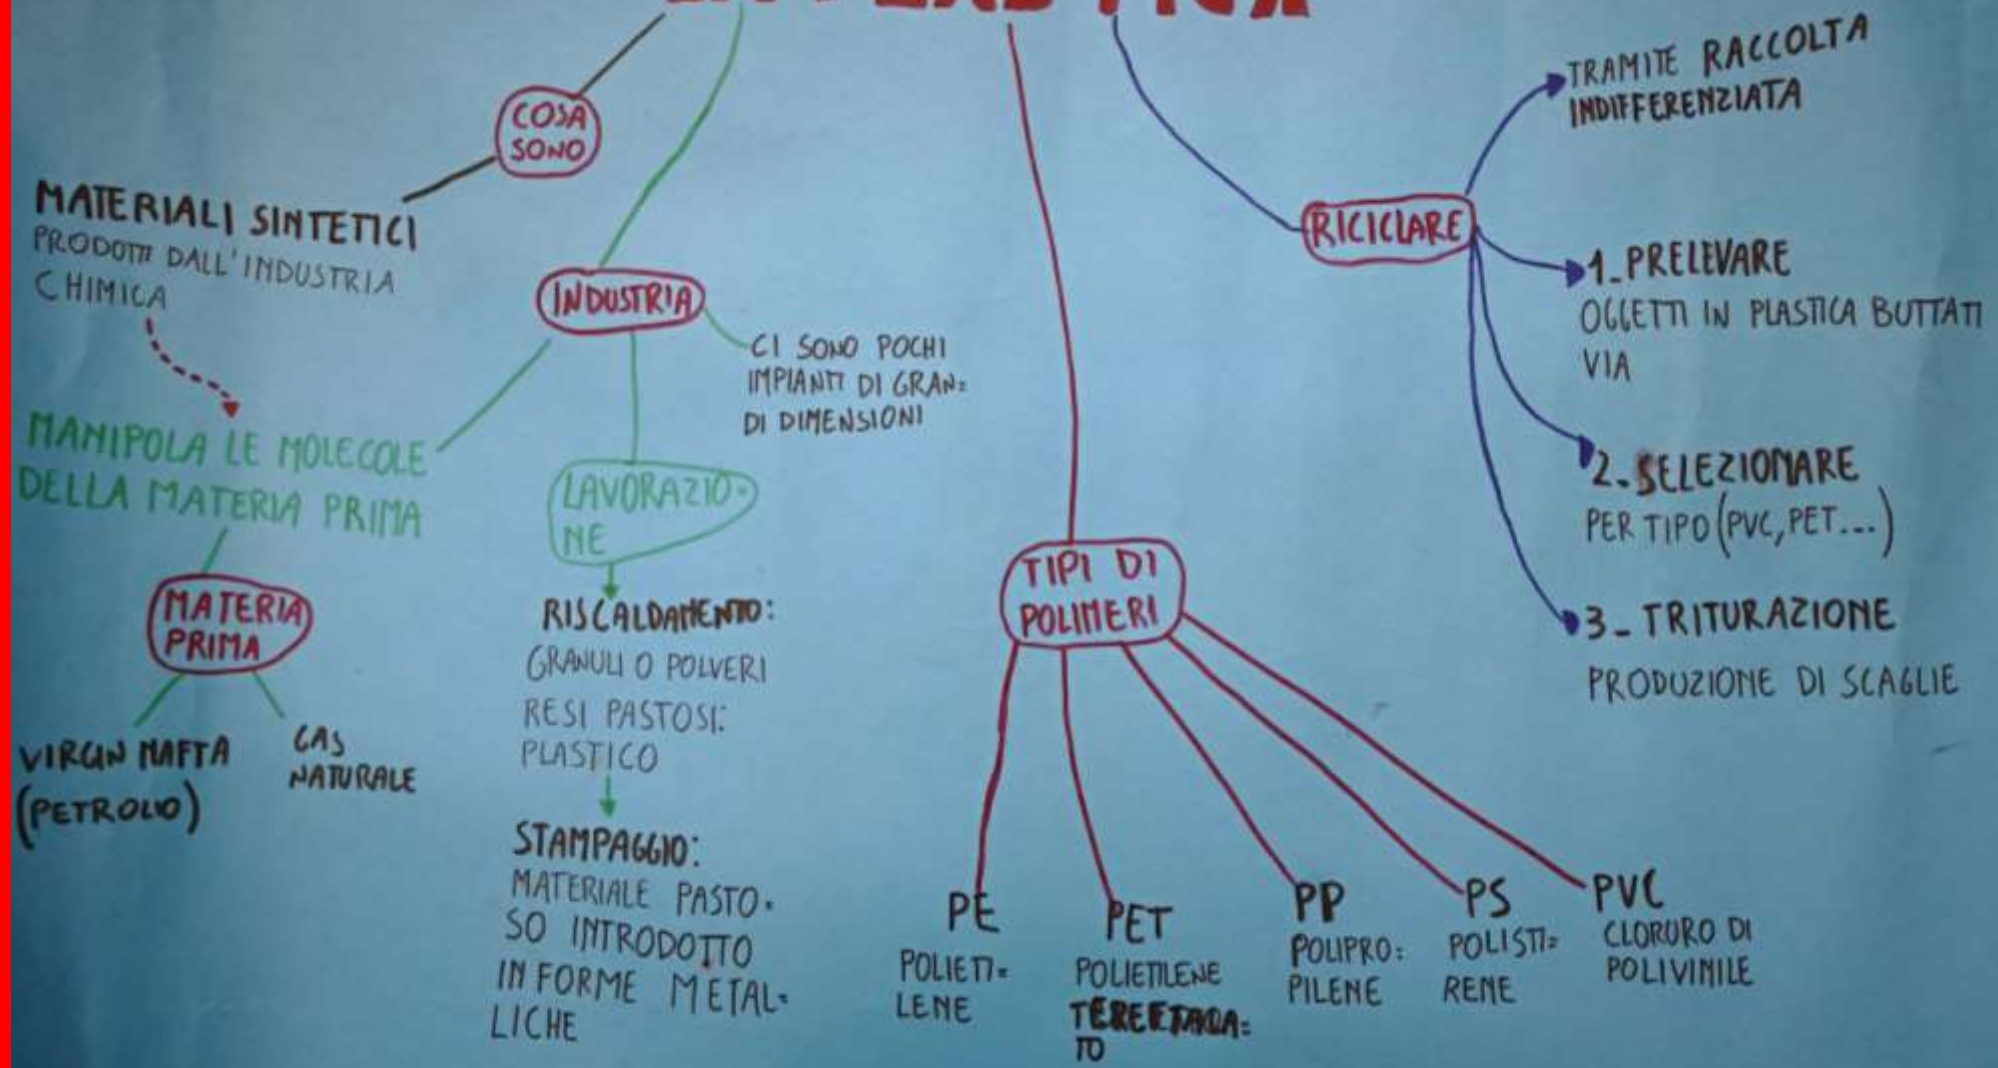 LA PLASTICA
COSA
SONO
MATERIALI SINTETICI
PRODOTTI DALL'INDUSTRIA
CHIMICA
MANIPOLA LE MOLECOLE
DELLA MATERIA PRIMA
MATERIA
PRIMA
VIRGIN NAFTA
(PETROLIO)
GAS
NATURALE
INDUSTRIA
CI SONO POCHI
IMPIANTI DI GRAN=
DI DIMENSIONI
LAVORAZIO-
NE
RISCALDAMENTO:
GRANULI O POLVERI
RESI PASTOSI:
PLASTICO
STAMPAGGIO:
MATERIALE PASTO-
SO INTRODOTTO
IN FORME METAL=
LICHE
TIPI DI
POLIMERI
PE
POLIETI=
LENE
PET
POLIETILENE
TO
PP
POLIPRO=
PILENE
PS
POLISTI=
RENE
PVC
CLORURO DI
POLIVINILE
RICICLARE
TRAMITE RACCOLTA
INDIFFERENZIATA
1_PRELEVARE
OGGETTI IN PLASTICA BUTTATI
VIA
2-SELEZIONARE
PER TIPO (PVC, PET...)
3_TRITURAZIONE
PRODUZIONE DI SCAGLIE